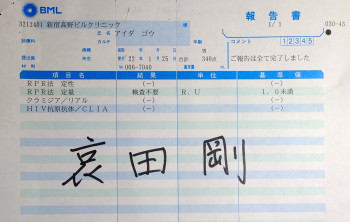 BML
報告書
1/ 1
030-43
3212401 新宿高野ビルクリニック
アイダ ゴウ
カルテ
男
コメント 12345
22年 1月25日 合計 340点
ご報告は全て完了しました
№ 006-7040
項目名 結果 単位 基準値
RPR法 定性 (-) (-)
RPR法 定量 検査不要 R.U 1.0未満
クラミジア/リアル (-) (-)
HIV抗原抗体/CLIA (-) (-)
哀田 剛